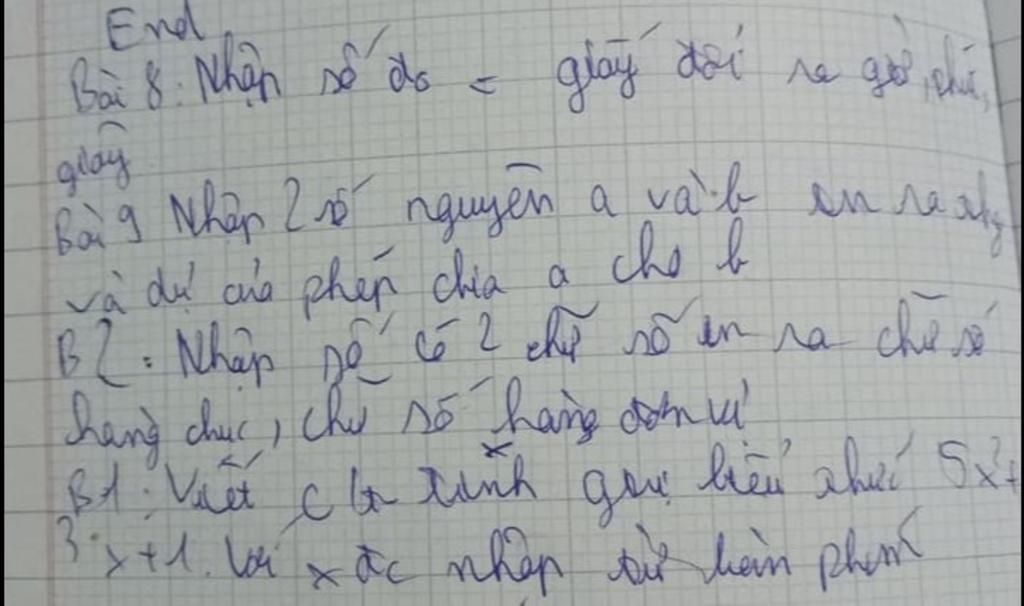 End
Bài 8: Nhập số đo = giây đổi ra giờ, phút,
giây
Bài 9 Nhập 2 số nguyên a và b in ra
và dư của phép chia a cho b
B2: Nhập số có 2 chữ số in ra chữ số
hàng chục, chữ số hàng đơn vị
B1: Viết ctr tính gtrị biểu thức 5x²+
3.x+1. Với x đc nhập từ bàn phím